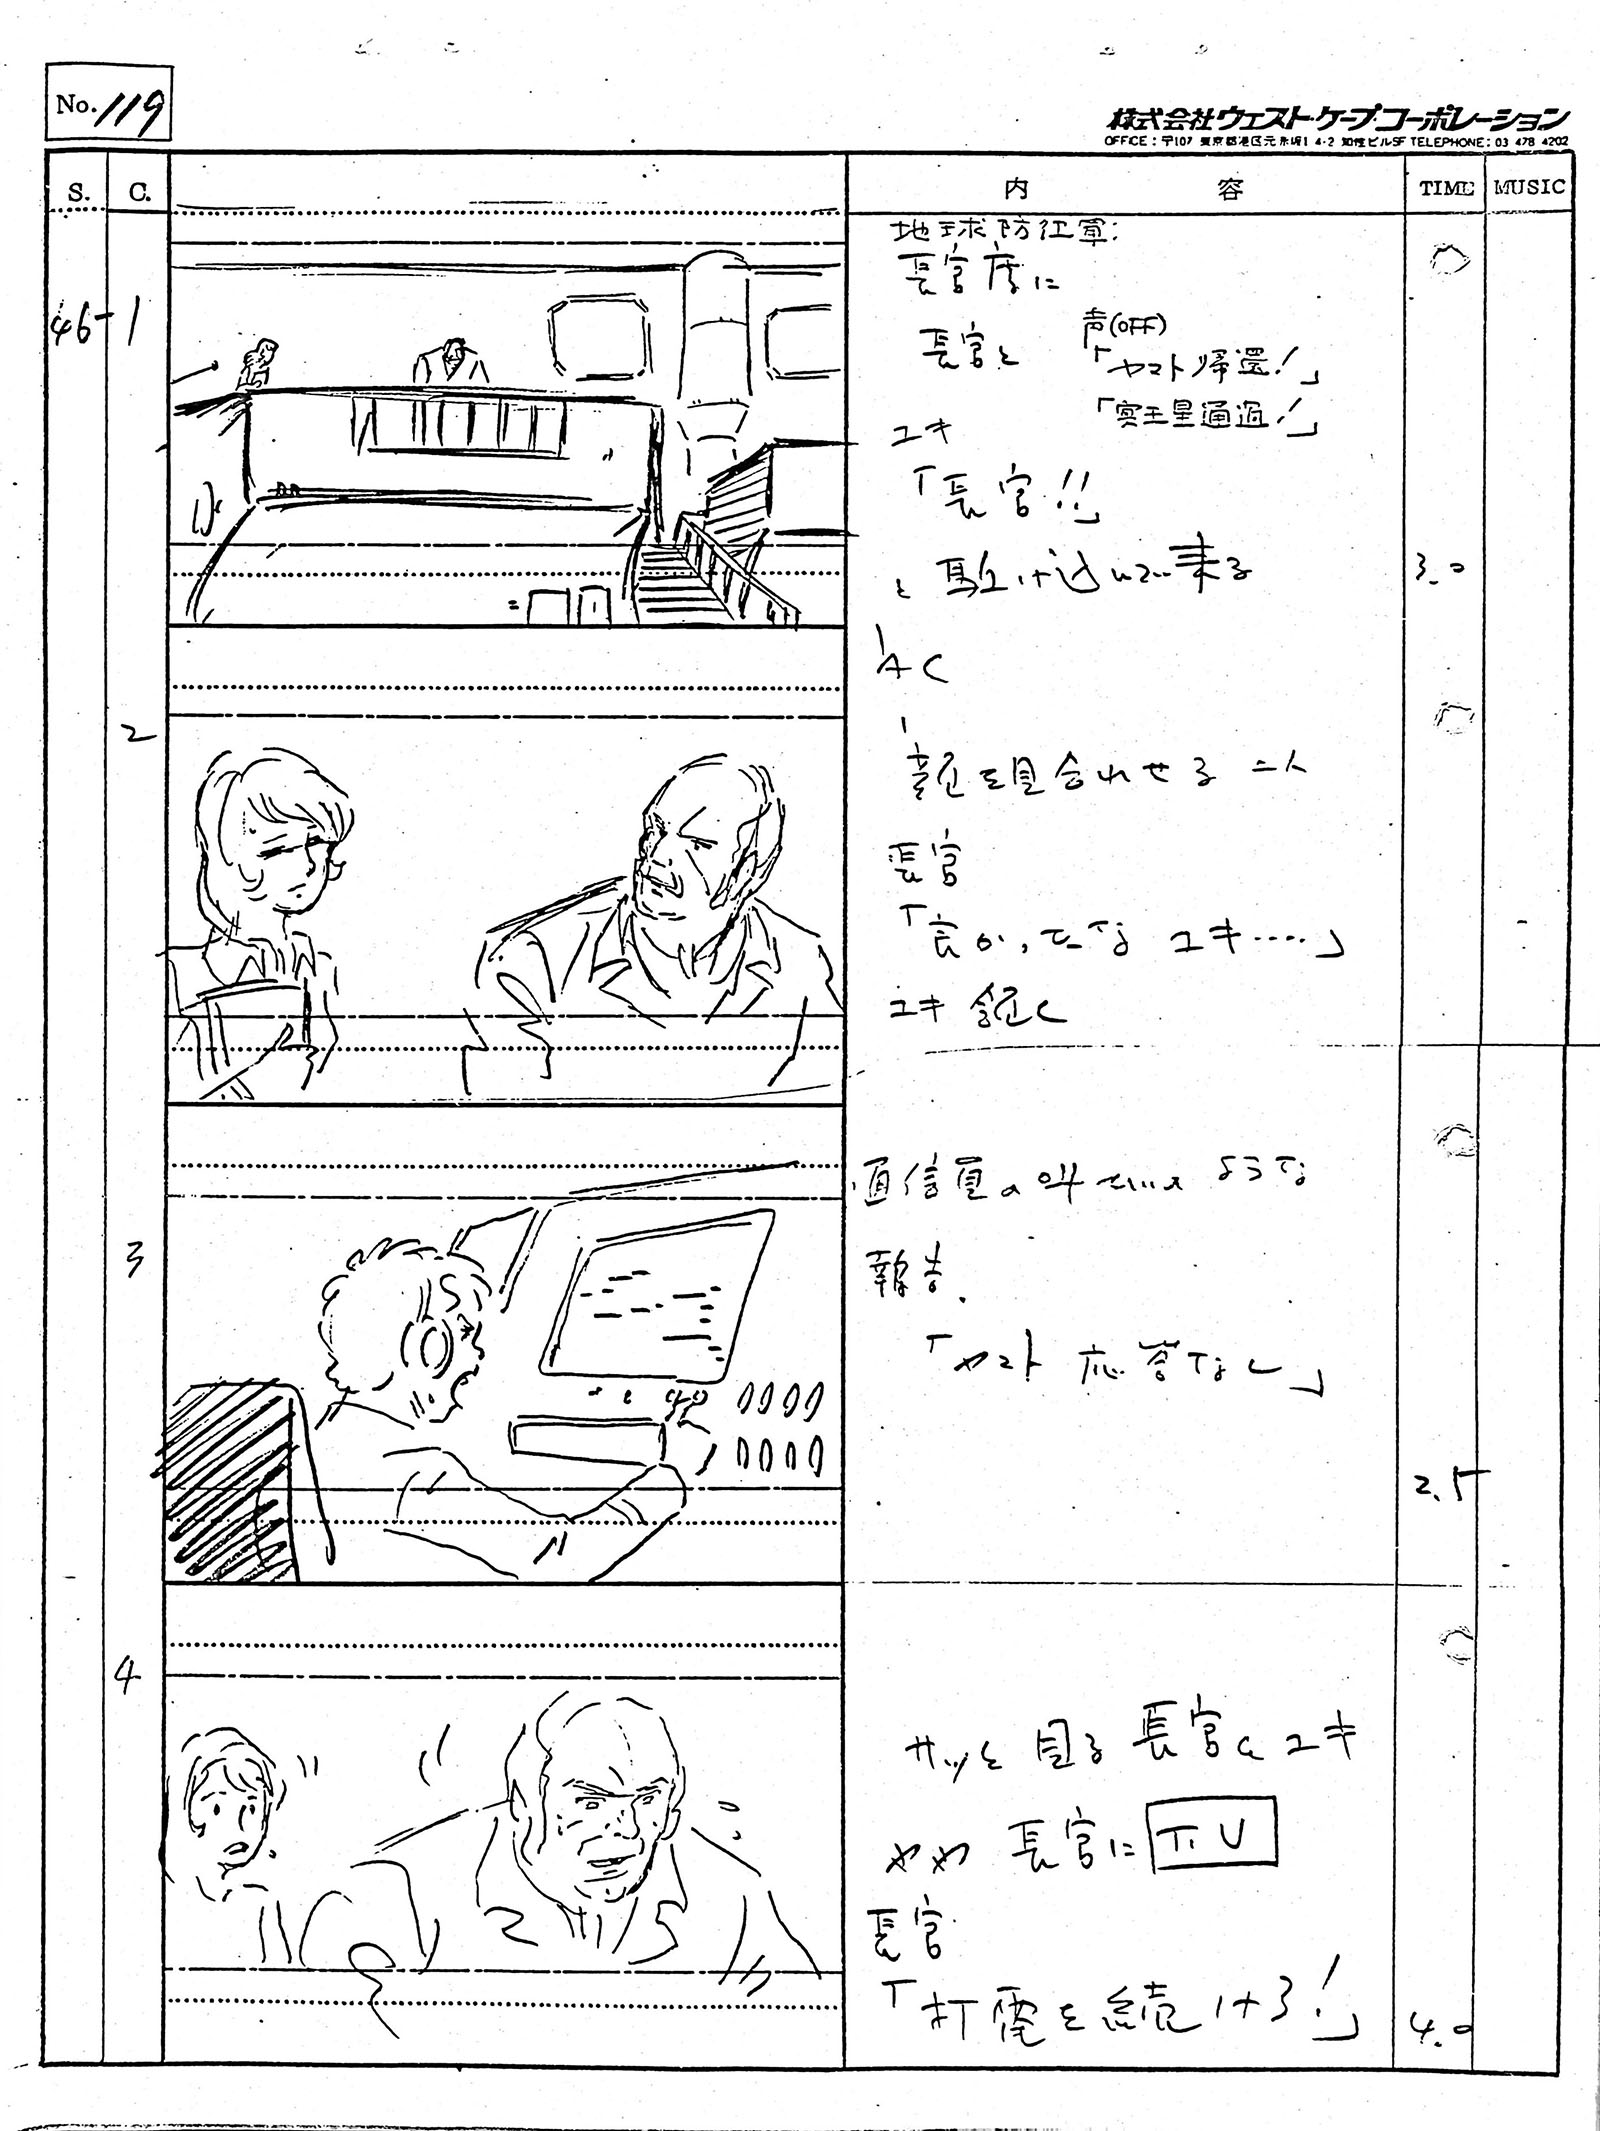 No. 119
株式会社ウェスト・ケープ・コーポレーション
OFFICE : 〒107 東京都港区元赤坂1 4-2 知性ビル5F TELEPHONE : 03 478 4202
S. C. 内 容 TIME MUSIC
46-1
地球防衛軍:
長官席に
長官と
声(OFF)
「ヤマト帰還!」
「冥王星通過!」
ユキ
「長官!!」
と駆け込んで来る
3.0
AC
2
顔を見合わせる二人
長官
「良かったな ユキ‥‥」
ユキ 領く
3
通信員の叫
ような
報告.
「ヤマト 応答なし」
2.5
4
サッと見る長官とユキ
やや 長官に T.U
長官
「打電を続けろ!」
4.0